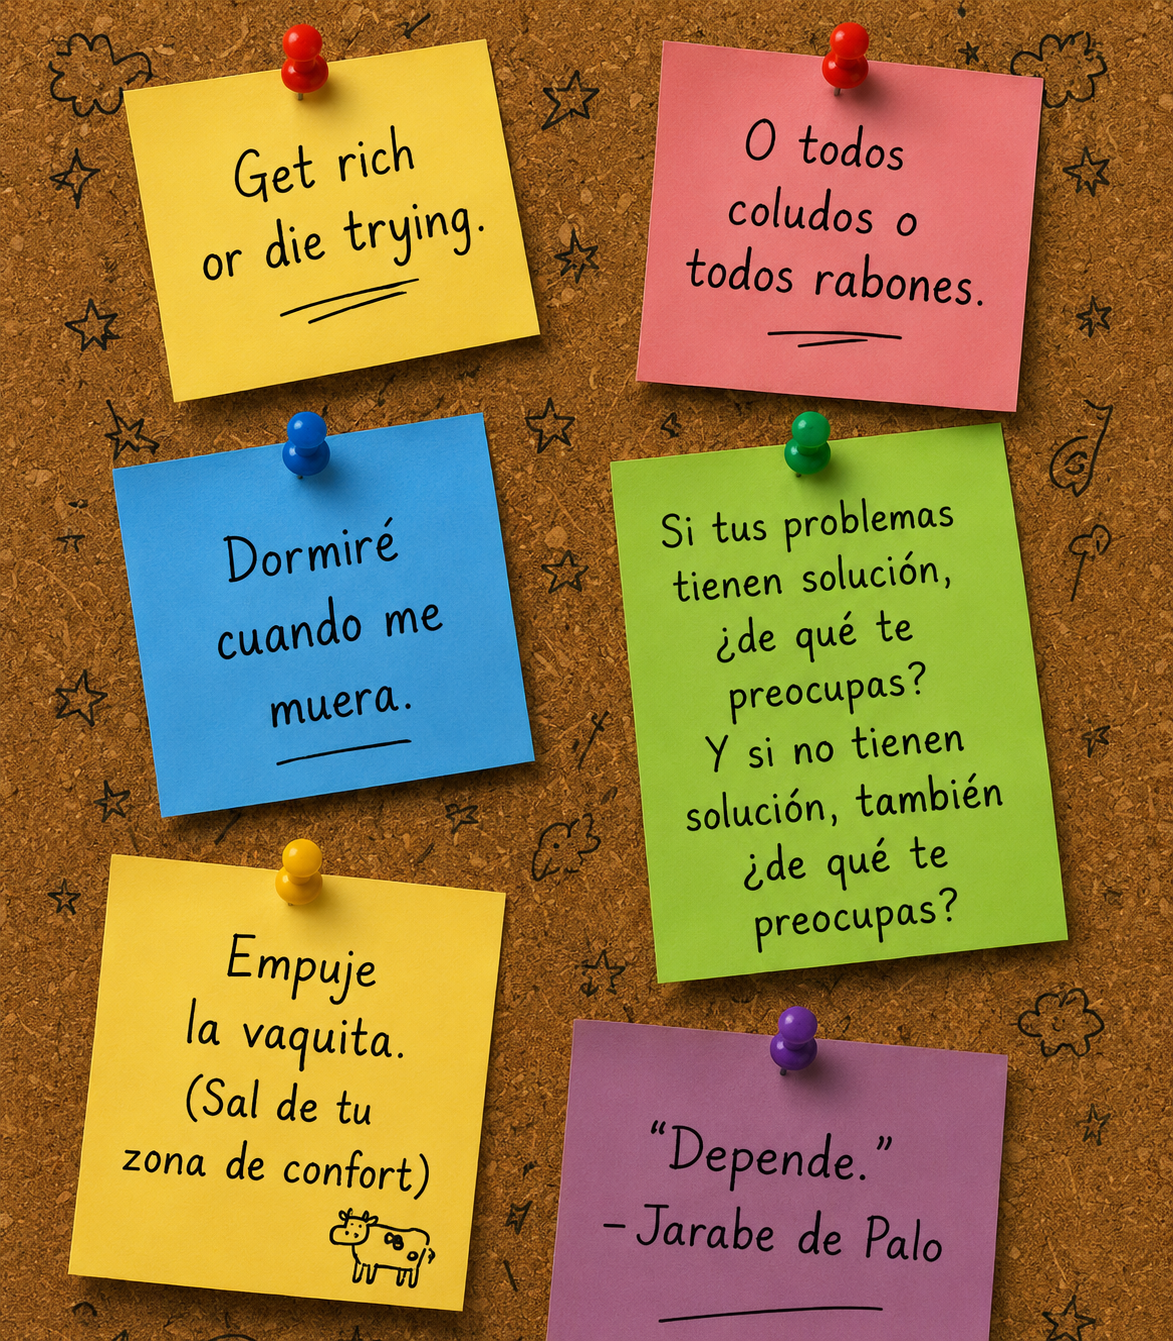 Get rich
or die trying.
O todos
coludos o
todos rabones.
Dormiré
cuando me
muera.
Si tus problemas
tienen solución,
¿de qué te
preocupas?
Y si no tienen
solución, también
¿de qué te
preocupas?
Empuje
la vaquita.
(Sal de tu
zona de confort)
“Depende.”
– Jarabe de Palo